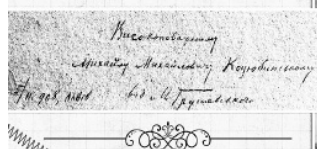 Високоповажному
Михайлу Михайловичу Коцюбинському
від М. Грушевського